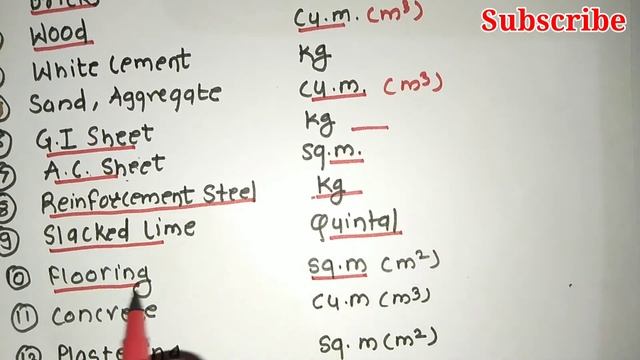 Subscribe
Wood Cu.m. (m³)
White Cement Kg
Sand, Aggregate Cu.m. (m³)
G.I Sheet Kg
A.C. Sheet Sq.m.
⑧ Reinforcement Steel Kg
⑨ Slacked Lime Quintal
⑩ Flooring Sq.m (m²)
⑪ Concrete Cu.m (m³)
⑫ Sq.m (m²)